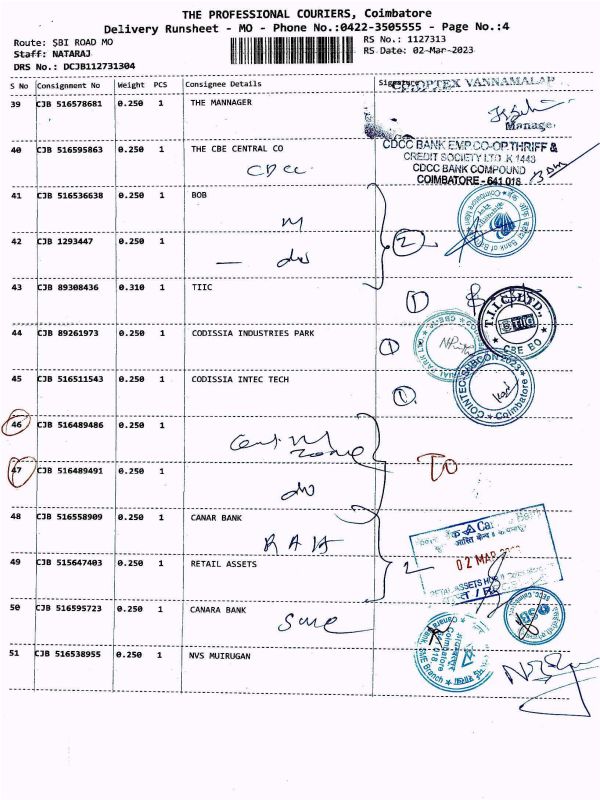 THE PROFESSIONAL COURIERS, Coimbatore
Delivery Runsheet - MO - Phone No.:0422-3505555 - Page No.:4
Route: SBI ROAD MO
RS No.: 1127313
Staff: NATARAJ
RS Date: 02-Mar-2023
DRS No.: DCJB112731304
S No Consignment No Weight PCS Consignee Details Signature
39 CJB 516578681 0.250 1 THE MANNAGER
Manage
40 CJB 516595863 0.250 1 THE CBE CENTRAL CO
CDCC
CDCC BANK EMP.CO-OP.THRIFF &
CREDIT SOCIETY LTD. K 1443
CDCC BANK COMPOUND
COIMBATORE - 641 018
41 CJB 516536638 0.250 1 BOB
M
2
42 CJB 1293447 0.250 1
do
43 CJB 89308436 0.310 1 TIIC
1
T.I.I.C. LTD.,
TIIC
CBE BO
44 CJB 89261973 0.250 1 CODISSIA INDUSTRIES PARK
1
45 CJB 516511543 0.250 1 CODISSIA INTEC TECH
1
Coimbatore
46 CJB 516489486 0.250 1
zone
TO
47 CJB 516489491 0.250 1
do
48 CJB 516558909 0.250 1 CANAR BANK
RAH
02 MAR
49 CJB 515647403 0.250 1 RETAIL ASSETS
2
50 CJB 516595723 0.250 1 CANARA BANK
sme
SBI
Coimbatore
SME Branch
51 CJB 516538955 0.250 1 NVS MUIRUGAN